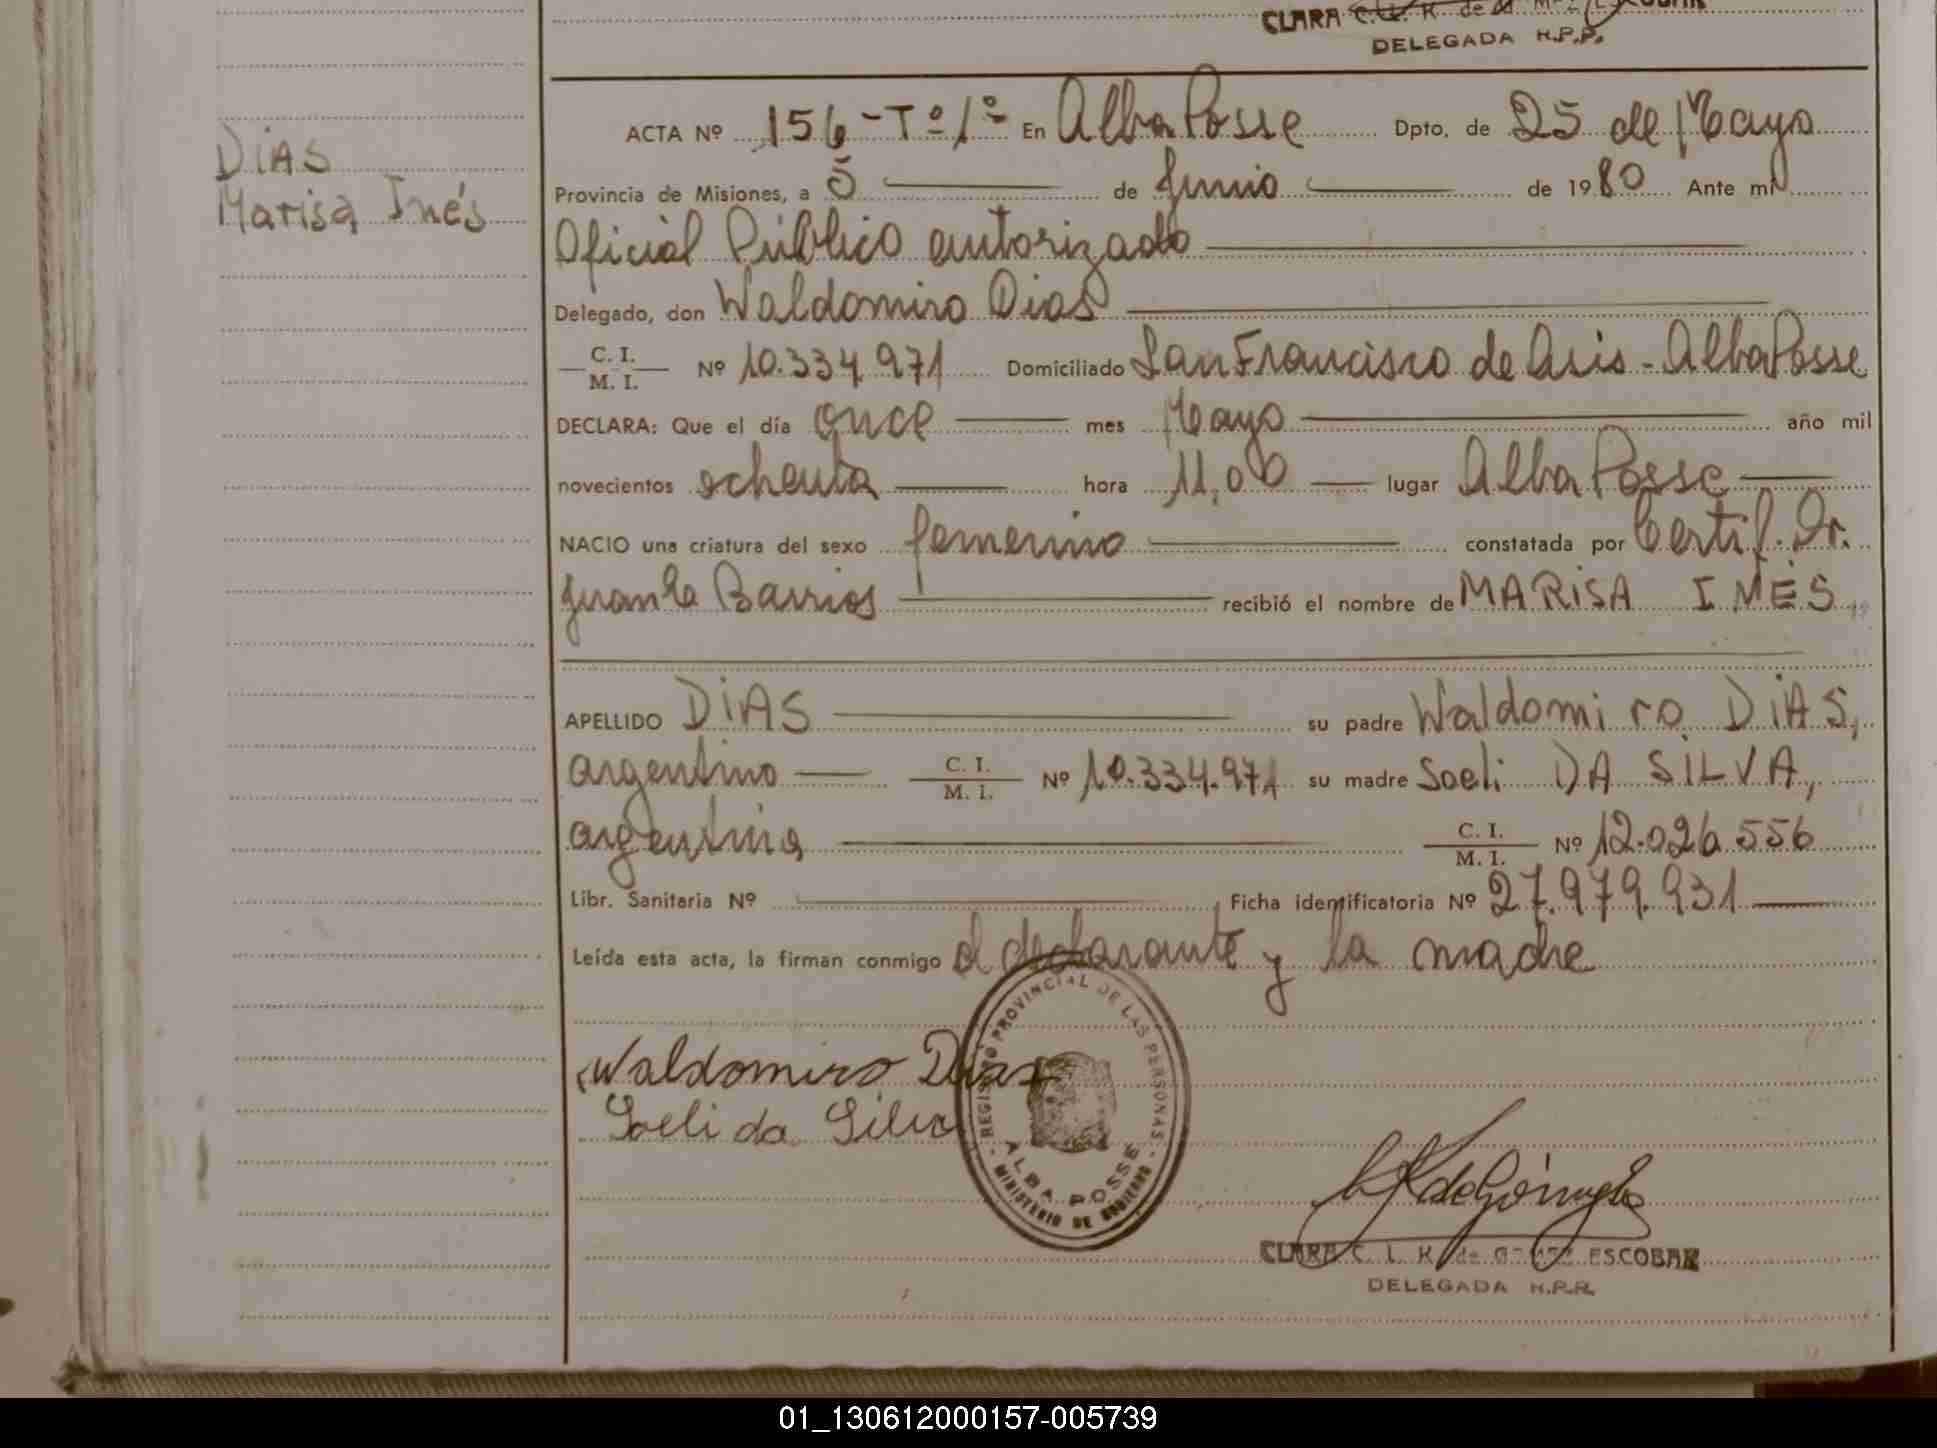 CLARA C. L. R. de G ESCOBAR
DELEGADA R.P.P.
DiAS
Marisa Inés
ACTA Nº 156-Tº1º En Alba Posse Dpto. de 25 de Mayo
Provincia de Misiones, a 5 de Junio de 1980 Ante mi
Oficial Público autorizado
Delegado, don Waldomiro Dias
C. I.
M. I. Nº 10.334.971 Domiciliado San Francisco de Asis - Alba Posse
DECLARA: Que el día once mes Mayo año mil
novecientos ochenta hora 11,00 lugar Alba Posse
NACIO una criatura del sexo femenino constatada por Certif. Dr.
Juan Barrios recibió el nombre de MARiSA INÉS
APELLIDO DiAS su padre Waldomiro DiAS,
argentino C. I.
M. I. Nº 10.334.971 su madre Soeli DA SiLVA,
argentina C. I.
M. I. Nº 12.026.556
Libr. Sanitaria Nº Ficha identificatoria Nº 27.979.931
Leída esta acta, la firman conmigo el declarante y la madre
Waldomiro Dias
Soeli da Silva
REGISTRO PROVINCIAL DE LAS PERSONAS
ALBA POSSE
MINISTERIO DE GOBIERNO
CLARA C. L. R. de GOMEZ ESCOBAR
DELEGADA R.P.P.
01_130612000157-005739